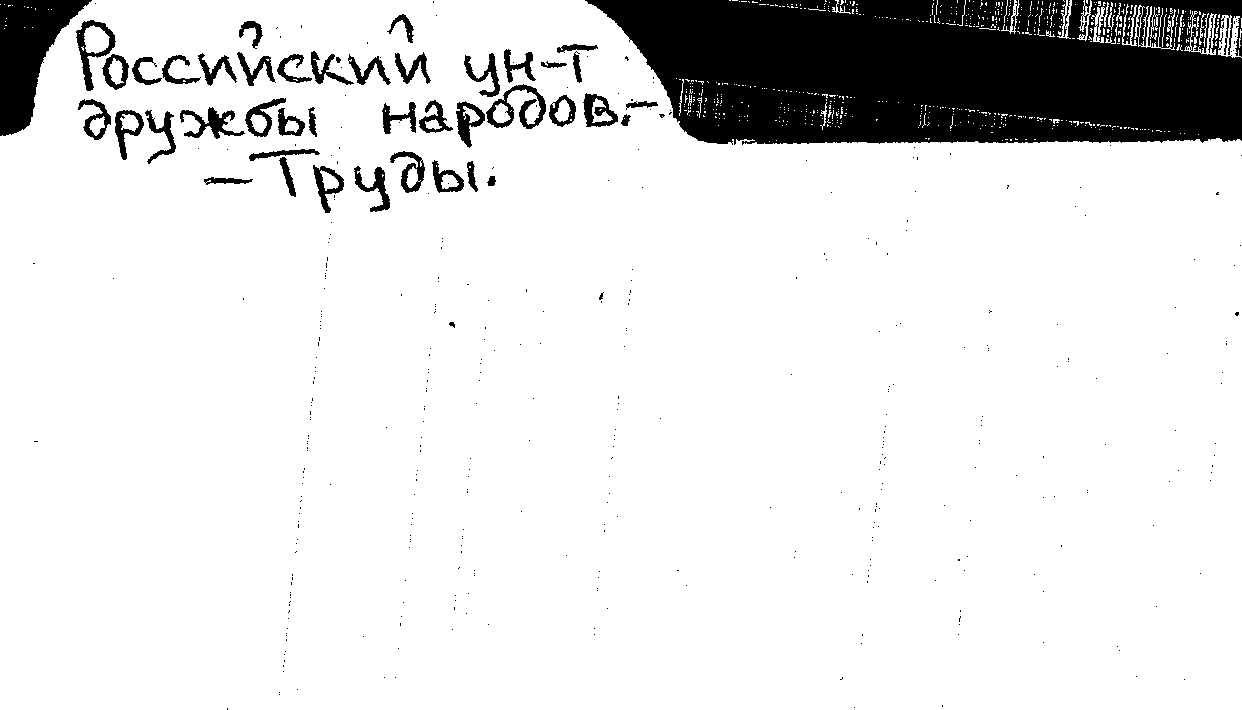 Российский ун-т
дружбы народов.-
- Труды.